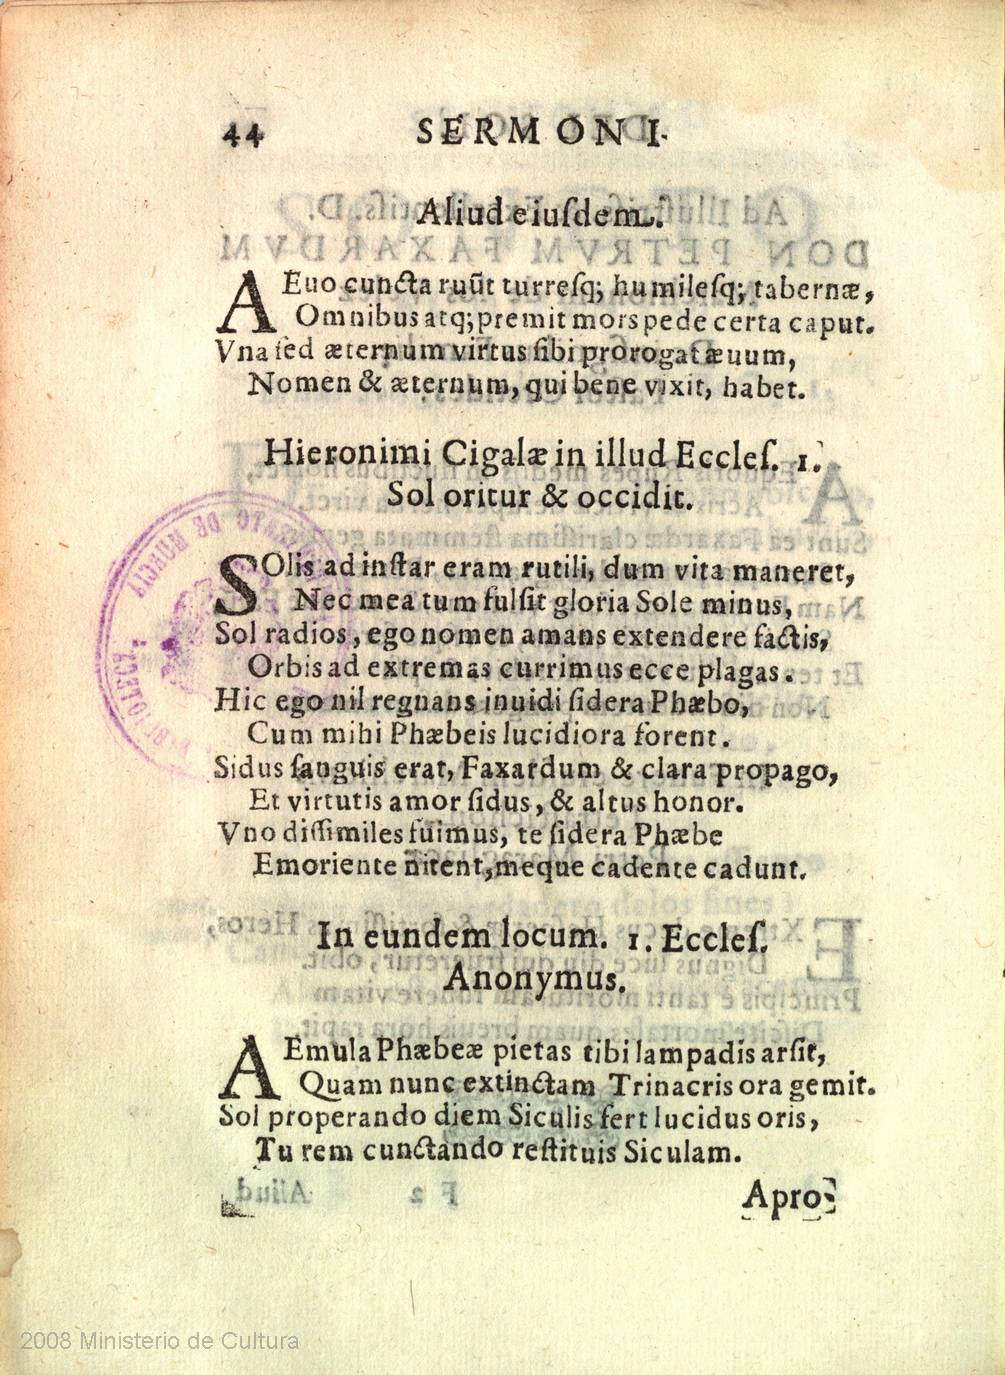 44 SERMON I.
Aliud eiuſdem.
AEuo cuncta ruũt turreſq; humileſq; tabernæ,
Omnibus atq; premit mors pede certa caput.
Vna ſed æternum virtus ſibi prorogat æuum,
Nomen & æternum, qui bene vixit, habet.
Hieronimi Cigalæ in illud Eccleſ. 1.
Sol oritur & occidit.
SOlis ad inſtar eram rutili, dum vita maneret,
Nec mea tum fulſit gloria Sole minus,
Sol radios, ego nomen amans extendere factis,
Orbis ad extremas currimus ecce plagas.
Hic ego nil regnans inuidi ſidera Phæbo,
Cum mihi Phæbeis lucidiora forent.
Sidus ſanguis erat, Faxardum & clara propago,
Et virtutis amor ſidus, & altus honor.
Vno diſſimiles fuimus, te ſidera Phæbe
Emoriente nitent, meque cadente cadunt.
In eundem locum. 1. Eccleſ.
Anonymus.
AEmula Phæbeæ pietas tibi lampadis arſit,
Quam nunc extinctam Trinacris ora gemit.
Sol properando diem Siculis fert lucidus oris,
Tu rem cunctando reſtituis Siculam.
Apro-
BIBLIOTECA
DE MURCIA
2008 Ministerio de Cultura